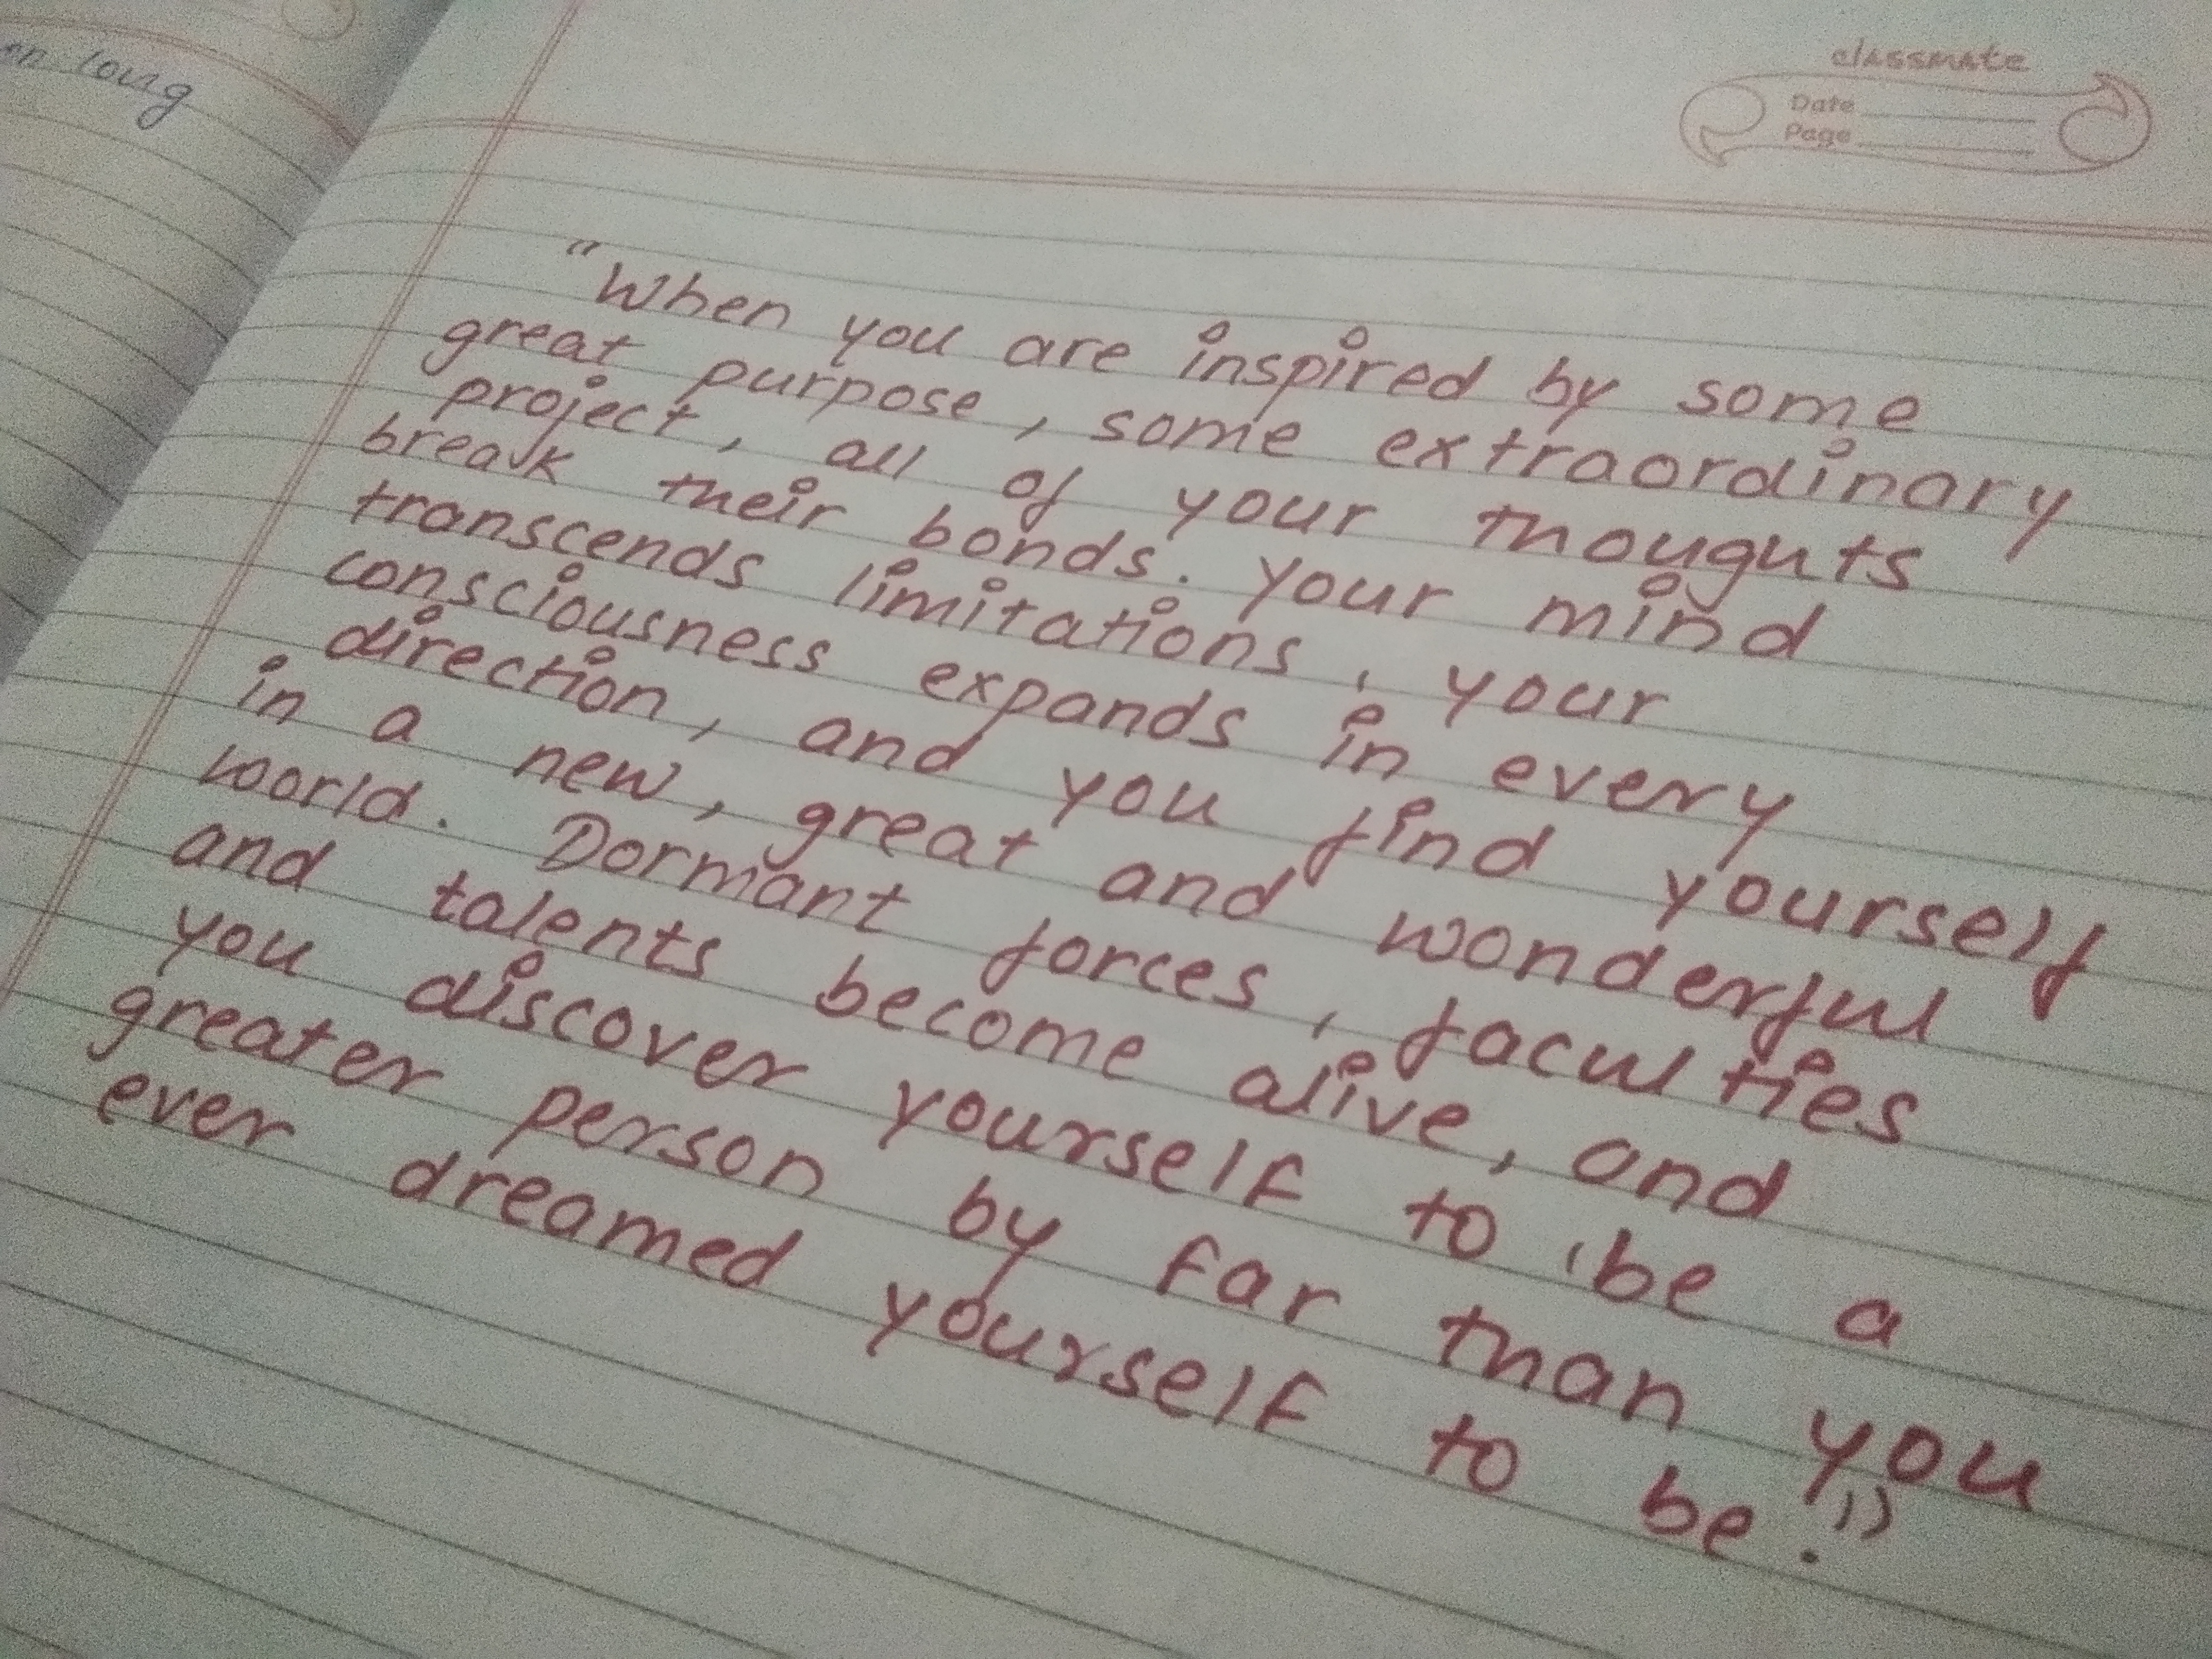 long
classmate
Date
Page
"When you are inspired by some
great purpose, some extraordinary
project, all of your thoughts
break their bonds. Your mind
transcends limitations, your
consciousness expands in every
direction, and you find yourself
in a new, great and wonderful
world. Dormant forces, faculties
and talents become alive, and
you discover yourself to be a
greater person by far than you
ever dreamed yourself to be."